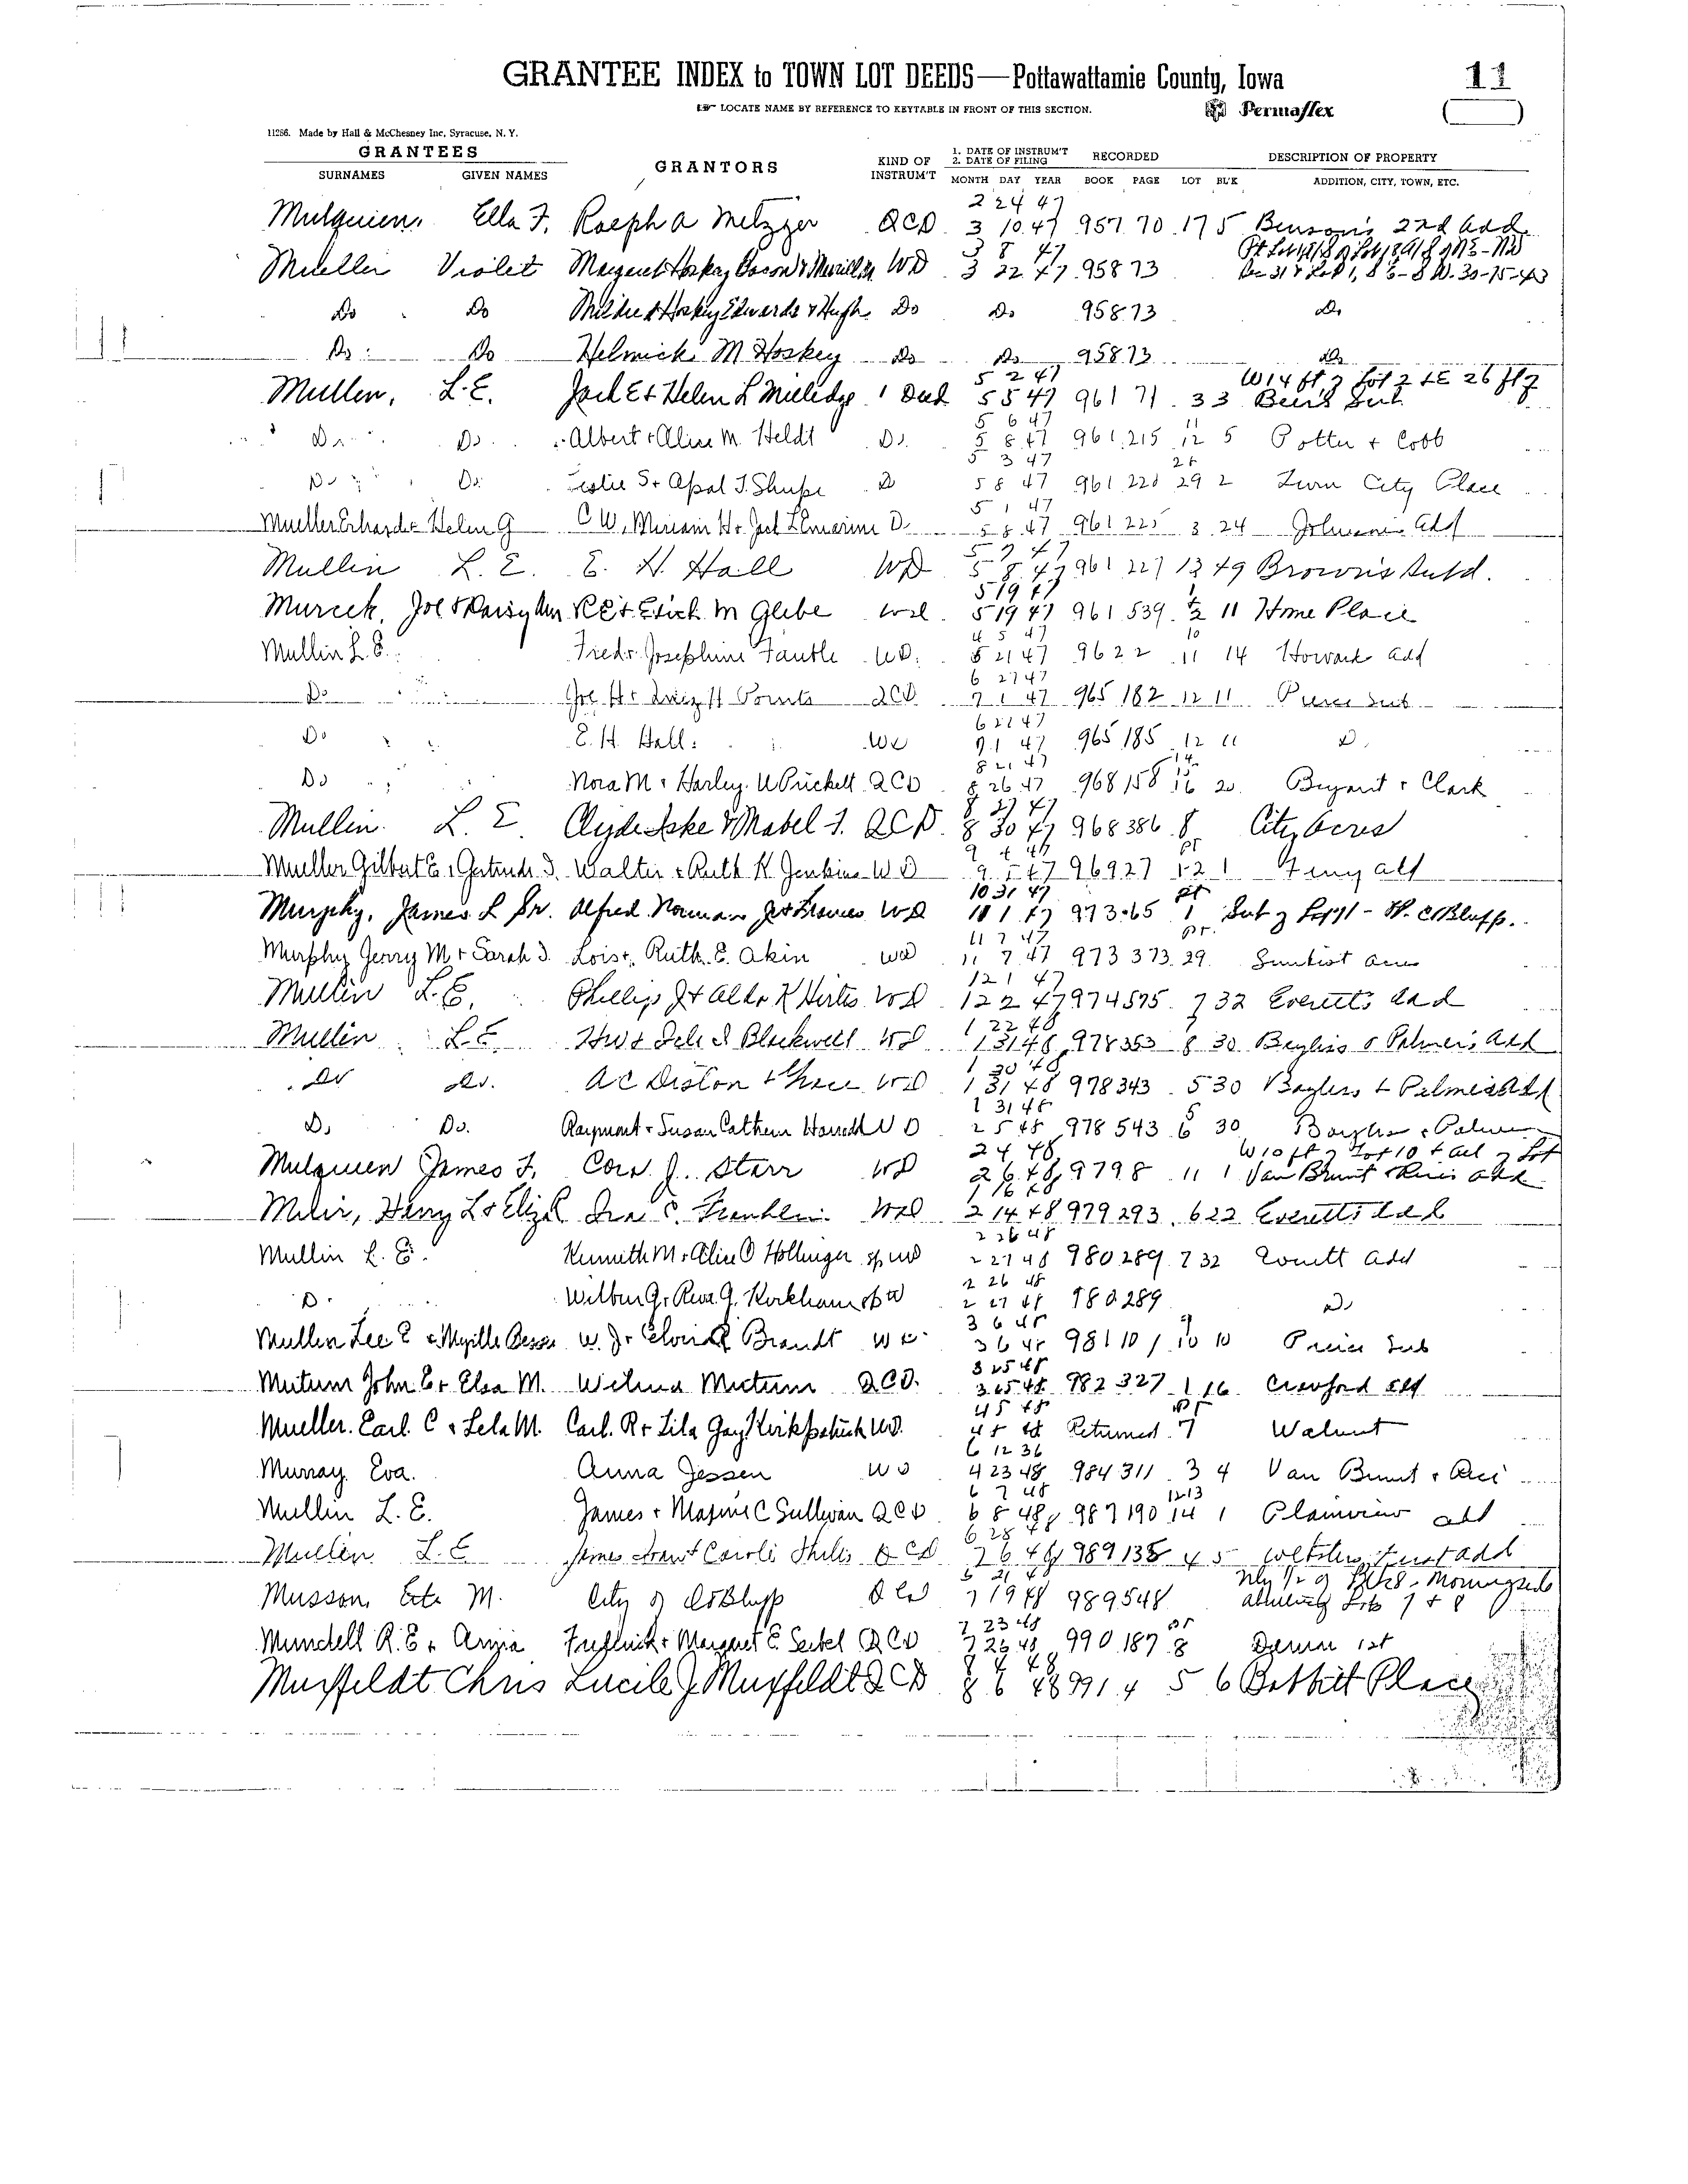 GRANTEE INDEX to TOWN LOT DEEDS—Pottawattamie County, Iowa 11
LOCATE NAME BY REFERENCE TO KEYTABLE IN FRONT OF THIS SECTION. Permaflex
11286. Made by Hall & McChesney Inc, Syracuse, N. Y.
GRANTEES GRANTORS KIND OF INSTRUM'T 1. DATE OF INSTRUM'T 2. DATE OF FILING RECORDED DESCRIPTION OF PROPERTY
SURNAMES GIVEN NAMES MONTH DAY YEAR BOOK PAGE LOT BL'K ADDITION, CITY, TOWN, ETC.
2 24 47
Mulquien, Ella F. Ralph A Metzger QCD 3 10 47 957 70 17 5 Benson's 2nd Add
3 8 47
Mueller Violet Margaret Hoskey WD 3 22 47 958 73
Do Do Mildred Hoskey Edwards & Hugh Do Do 958 73 Do
Do Do Helmick M Hoskey Do Do 958 73 Do
5 2 47 W 14 ft of Lot 2 & E 26 ft of
Mullen, L.E. Jack E & Helen L Deed 5 5 47 961 71 3 3 Sub
5 6 47 11
Do Do Albert & Alice M. Heldt Do 5 8 47 961 215 12 5 Potter & Cobb
5 3 47
Do Do Leslie S & Opal J. Shupe D 5 8 47 961 220 29 2 Twin City Place
5 1 47
Mueller Erhard & Helen G C W, Miriam H & D 5 8 47 961 225 3 24 Johnson's Add
5 7 47
Mullin L. E. E. H. Hall WD 5 8 47 961 227 13 49 Brown's Subd.
5 19 47
Murcek, Joe & Daisy Ann R E & M Glebe WD 5 19 47 961 539 11 Home Place
4 5 47 10
Mullin L. E. Fred & Josephine WD 5 21 47 962 2 11 14 Howard Add
6 27 47
Do Joe H & Inez H Points QCD 7 1 47 965 182 12 11 Pierce Sub
6 27 47
Do E. H. Hall WD 7 1 47 965 185 12 11 D
8 21 47 14
Do Nora M & Harley W Prickett QCD 8 26 47 968 158 16 20 Bryant & Clark
8 27 47
Mullin L. E. Clyde Iske & Mabel I. QCD 8 30 47 968 386 8 City Acres
9 4 47 pt
Mueller Gilbert E & Gertrude I. Walter & Ruth K Jenkins WD 9 5 47 969 27 12 1 Ferry Add
10 31 47 pt
Murphy, James L Sr. Alfred Norman Jr & Frances WD 11 1 47 973 65 1 Sub of - W. C Bluffs.
11 7 47 pt.
Murphy Jerry M & Sarah I. Lois & Ruth E. Akin WD 11 7 47 973 373 29 Sunkist Acres
12 1 47
Mullin L.E. Phillip J & Alda K WD 12 2 47 974 575 7 32 Everetts Add
1 22 48
Mullin L.E. H W & I Blackwell WD 1 31 48 978 353 8 30 Bayliss & Palmer's Add
1 30 48
Do Do A C Diston & Grace WD 1 31 48 978 343 5 30 Bayliss & Palmers Add
1 31 48 5
Do Do. Raymond & Susan WD 2 5 48 978 543 6 30 Bayliss & Palmer
2 4 48 W 10 ft of Lot 10 & all of Lot
Mulquien James F. Cora J. Starr WD 2 6 48 979 8 11 1 Van Brunt & Rice's Add
1 16 48
Harry L & Eliz R Ira C. Franklin WD 2 14 48 979 293 6 22 Everetts Add
2 26 48
Mullin L. E. Kenneth M & Alice O Hollinger sp WD 2 27 48 980 289 7 32 Everett Add
2 26 48
D. Wilbur G & Reva G. Kirkham 2 27 48 980 289 D
3 6 48 9
Mullen Lee E & Myrtle W. J & Brandt WD 3 6 48 981 101 10 10 Pierce Sub
3 25 48
Mutum John E & Elsa M. Wilma Mutum QCD. 3 25 48 982 327 1 16 Crawford Add
4 5 48 pt
Mueller. Earl C & Lela M. Carl R & Lila Gay Kirkpatrick WD. 4 5 48 Returned 7 Walnut
6 12 36
Murray Eva. Anna Jessen WD 4 23 48 984 311 3 4 Van Brunt & Rice
6 7 48 12 13
Mullin L. E. James & Maxine C Sullivan QCD 6 8 48 987 190 14 1 Plainview add
6 28 48
Mullin L.E. James Grant & QCD 7 6 48 989 135 4 5 First Add
5 21 48 Nly 1/2 of Morningside
Musson, M. City of Co Bluffs QCD 7 19 48 989 548 abutting Lots 7 & 8
7 23 48 pt
Mundell R. E & Anna Fredrick & Margaret E. Seibel QCD 7 26 48 990 187 8 1st
8 4 48
Muxfeldt Chris Lucile J Muxfeldt QCD 8 6 48 991 4 5 6 Babbitt Place